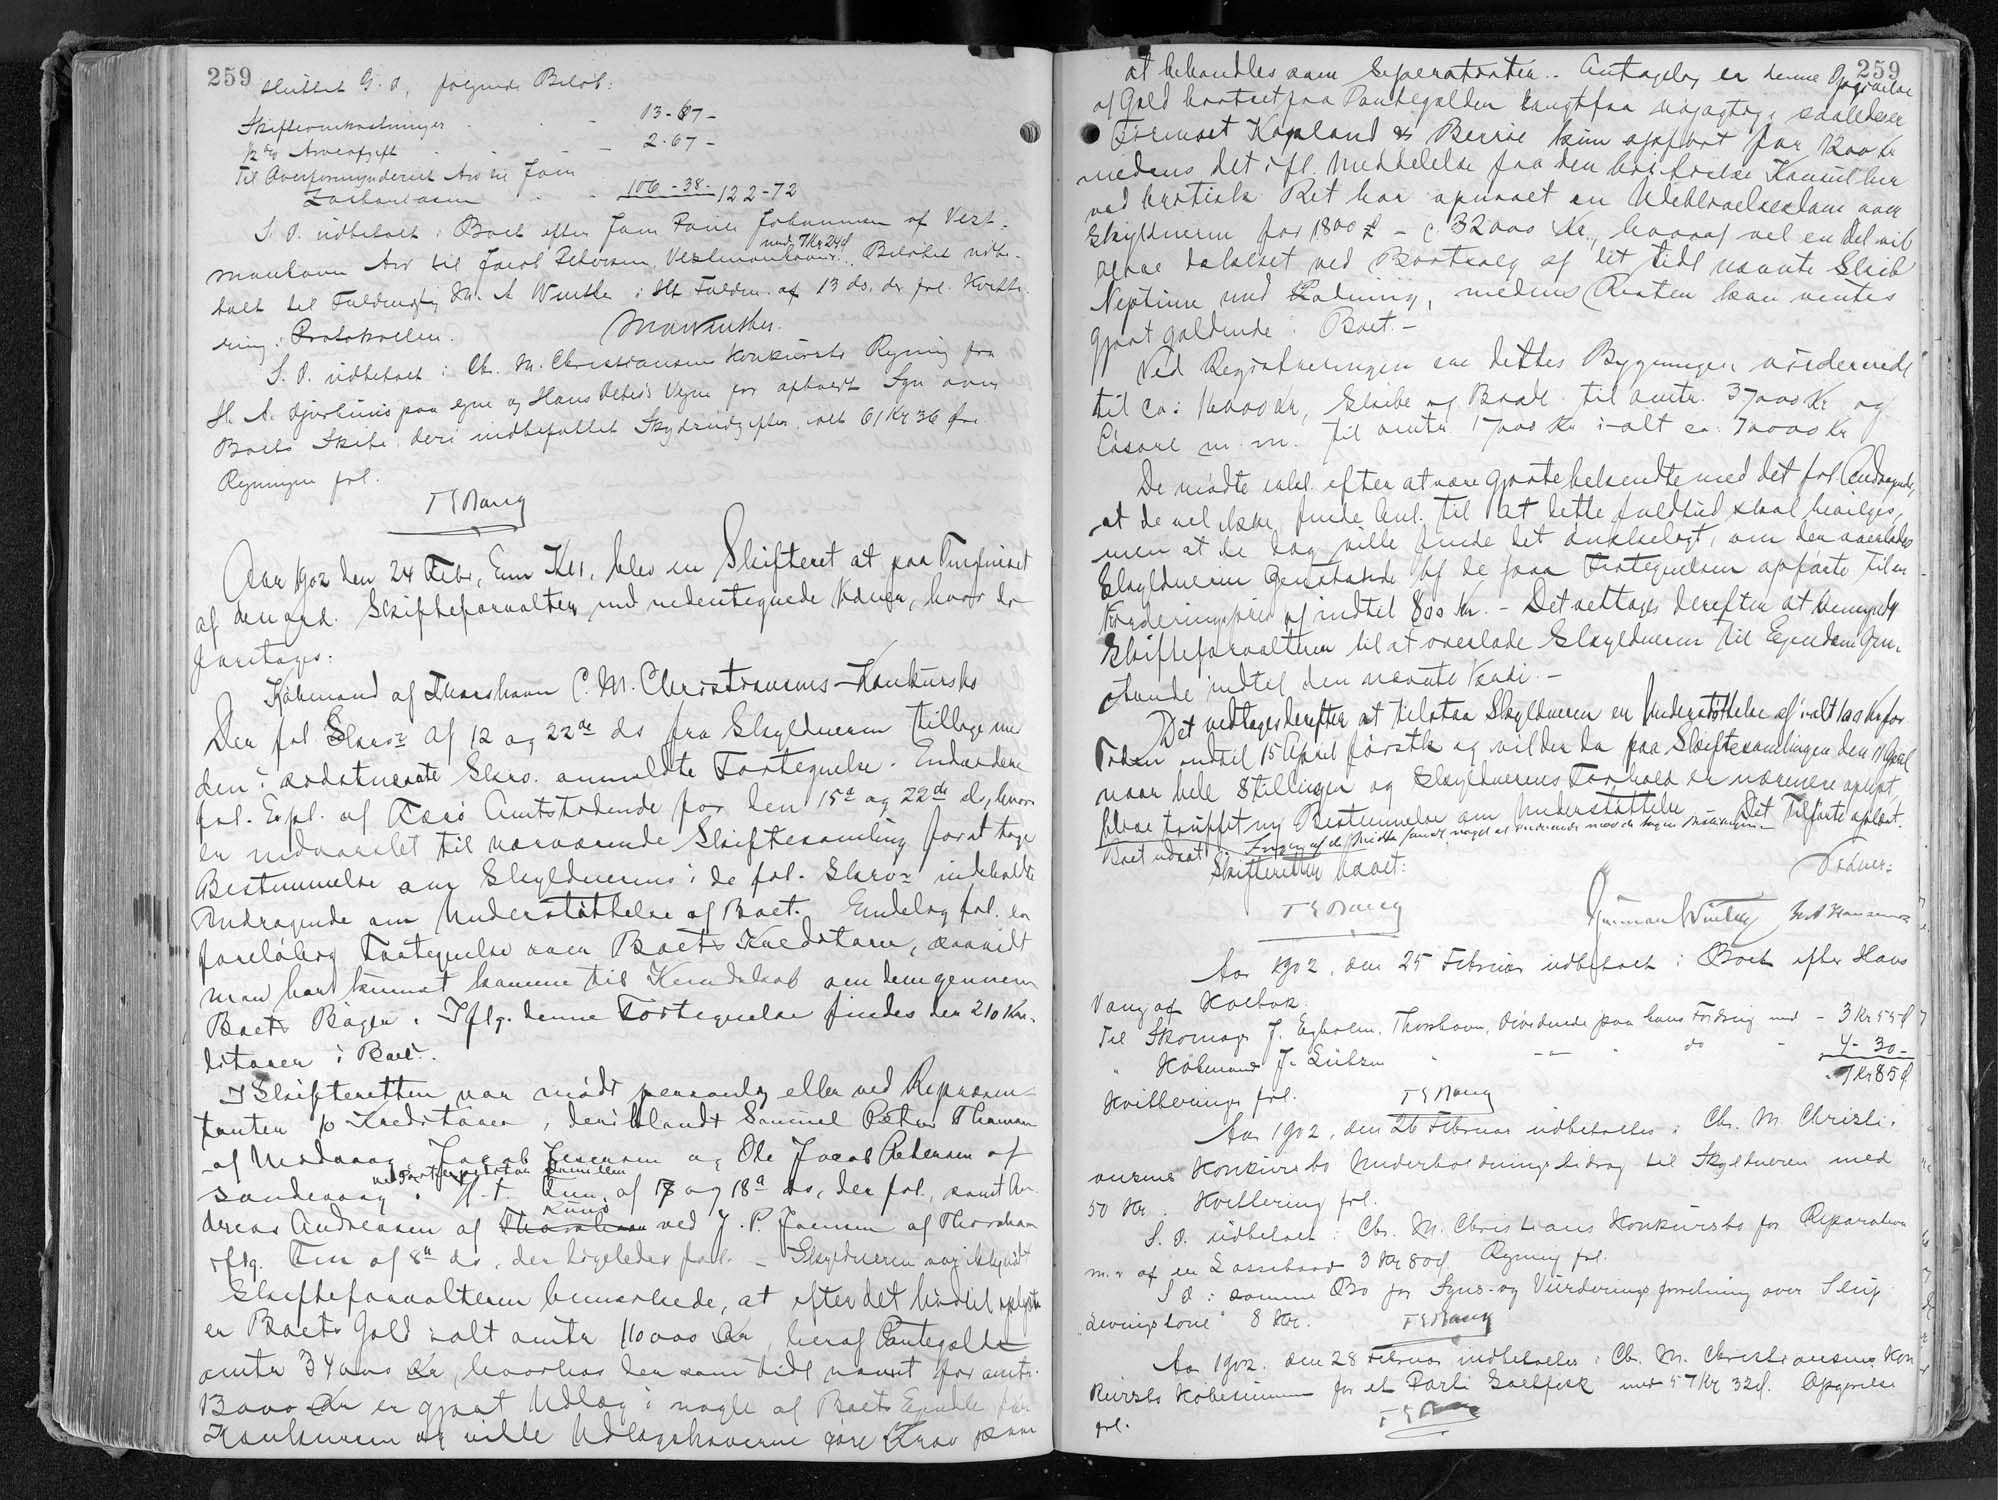 259
sluttet S. D. følgende Beløb:
Skifteomkostninger 13-67-
½ % Arveafgift 2-67-
Til Overformynderiet Arv til Joen
Zachariasen 106-38- 122-72
S. D. udbetalt i Boet efter Joen Poul Johannesen af Vest-
med 7 Kr 24 Ø
manhavn Arv til Jacob Pedersen, Vestmanhavn. Beløbet udbe-
talt til Fuldmægtig M. A. Winther i Hht Fuldm. af 13 ds. der fol. Kvitte-
ring i Protokollen.
MAWinther.
S. D. udbetalt i Chr. M. Christiansens Konkursbo Regning fra
H. A. Djurhuus paa egne og Hans Vegne for afholdt Syn over
Boets Skibe deri indbefattet Skydsudgifter, ialt 61 Kr 36 Øre
Regningen fol.
TSBang
Aar 1902 den 24 Febr., Em. Kl 1, blev en Skifteret sat paa Tinghuset
af den ord. Skifteforvalter med undertegnede Vidner, hvor da
foretages:
Købmand af Thorshavn C. M. Christiansens Konkursbo
Der fol Skriv. af 12 og 22de ds fra Skyldneren tillige med
den i sidstnævnte Skriv. anmeldte Fortegnelse. Endvidere
fol. Expl. af Færø Amtstidende for den 15de og 22de ds, hvori
er indvarslet til nærværende Skiftesamling for at tage
Bestemmelse om Skyldnerens i de fol. Skriv. indeholdte
Andragende om Understøttelse af Boet. Endelig fol. en
foreløbig Fortegnelse over Boets Kreditorer, saavidt
man har kunnet komme til Kendskab om dem gennem
Boets Bøger. Iflg. denne Fortegnelse findes der 210 Kre-
ditorer i Boet.
I Skifteretten var mødt personlig eller ved Repræsen-
tanter 10 Kreditorer, deriblandt Samuel Peter Thomsen
af Midvaag, Jacob Joensen og Ole Jacob Petersen af
Sandevaag i H. t. Fuldm. af 17 og 18de ds, der fol., samt An-
Sund
dreas Andreasen af Thorshavn ved J. P. Joensen af Thorshavn
iflg. Fm af 8de ds, der ligeledes fol. - Skyldneren var ikke mødt
Skifteforvalteren bemærkede, at efter det hidtil oplyste
er Boets Gæld ialt omtr 110000 Kr, heraf Pantegæld
omtr 34000 Kr, hvorhos der som tidl nævnt for omtr.
13000 Kr er gjort Udlæg i nogle af Boets Ejendele før
Konkursen og ville Udlægshaverne gøre Krav paa
259
at behandles som Separatister. Antagelig er denne Opgivelse
af Gæld bortset fra Pantegælden langtfra nøjagtig, saaledes er
Firmaet Kopland & Berrie kun opført for 1200 Kr
medens det ifl. Meddelelse fra den herv. britiske Konsul her
ved britisk Ret har opnaaet en Udeblivelsesdom over
Skyldneren for 1800 £ - c. 32000 Kr, hvoraf vel en Del vil
blive dækket ved Bortsalg af det tidl nævnte Skib
Neptun med Ladning, medens Resten kan ventes
gjort gældende i Boet. -
Ved Registreringen er dettes Bygninger vurderede
til ca. 16000 Kr, Skibe og Baade til omtr. 37000 Kr og
Løsøre m. m. til omtr 17000 Kr ialt ca. 70000 Kr
De mødte udt. efter at være gjorte bekendte med det fol. Andragende,
at de vel ikke finde Anl. til at dette fuldtud skal bevilges,
men at de dog ville finde det ønskeligt, om der overlodes
Skyldneren Genstande af de paa Fortegnelsen opførte til en
Vurderingspris af indtil 800 Kr. - Det vedtages derefter at bemynd.
Skifteforvalteren til at overlade Skyldneren til Ejendom Gen-
stande indtil den nævnte Værdi. -
Det vedtages derefter at tilstaa Skyldneren en Understøttelse af ialt 100 Kr for
Tiden indtil 15 April førstk og vil der da paa Skiftesamlingen den April
naar hele Stillingen og Skyldnerens Forhold er nærmere oplyst,
blive truffet ny Bestemmelse om Understøttelse. - Det Tilførte oplæst.
Ingen af de Mødte fandt noget at erindre mod de tagne Bestemmelser. -
Boet udsat.
Skifteretten hævet:
Vidner:
TSBang
Guttorm Winther H A Hansen
Aar 1902, den 25 Februar udbetalt i Boet efter Hans
Vang af Hvalbø.
Til Skomager J. Egholm, Thorshavn, Dividende paa hans Fordring med - 3 Kr 55 Ø
" Købmand J. Lützen - " - do - 4-30-
7 Kr 85 Ø
Kvitteringer fol. TSBang
Aar 1902, den 26 Februar udbetaltes i Chr. M. Christi-
ansens Konkursbo Underholdningsbidrag til Skyldneren med
50 Kr. Kvittering fol.
S. D. udbetalt i Chr. M. Christians Konkursbo for Reparation
m. v. af en 3 Kr 80 Ø. Regning fol.
S. D. i samme Bo for Syns- og Vurderingsforretning over Slup
"Livingstone" 8 Kr. TSBang
Aar 1902, den 28 Februar indbetaltes i Chr. M. Christiansens Kon-
kursbo Købesummen for et Parti Saltfisk med 57 Kr 32 Ø. Opgørelse
fol. TSBang